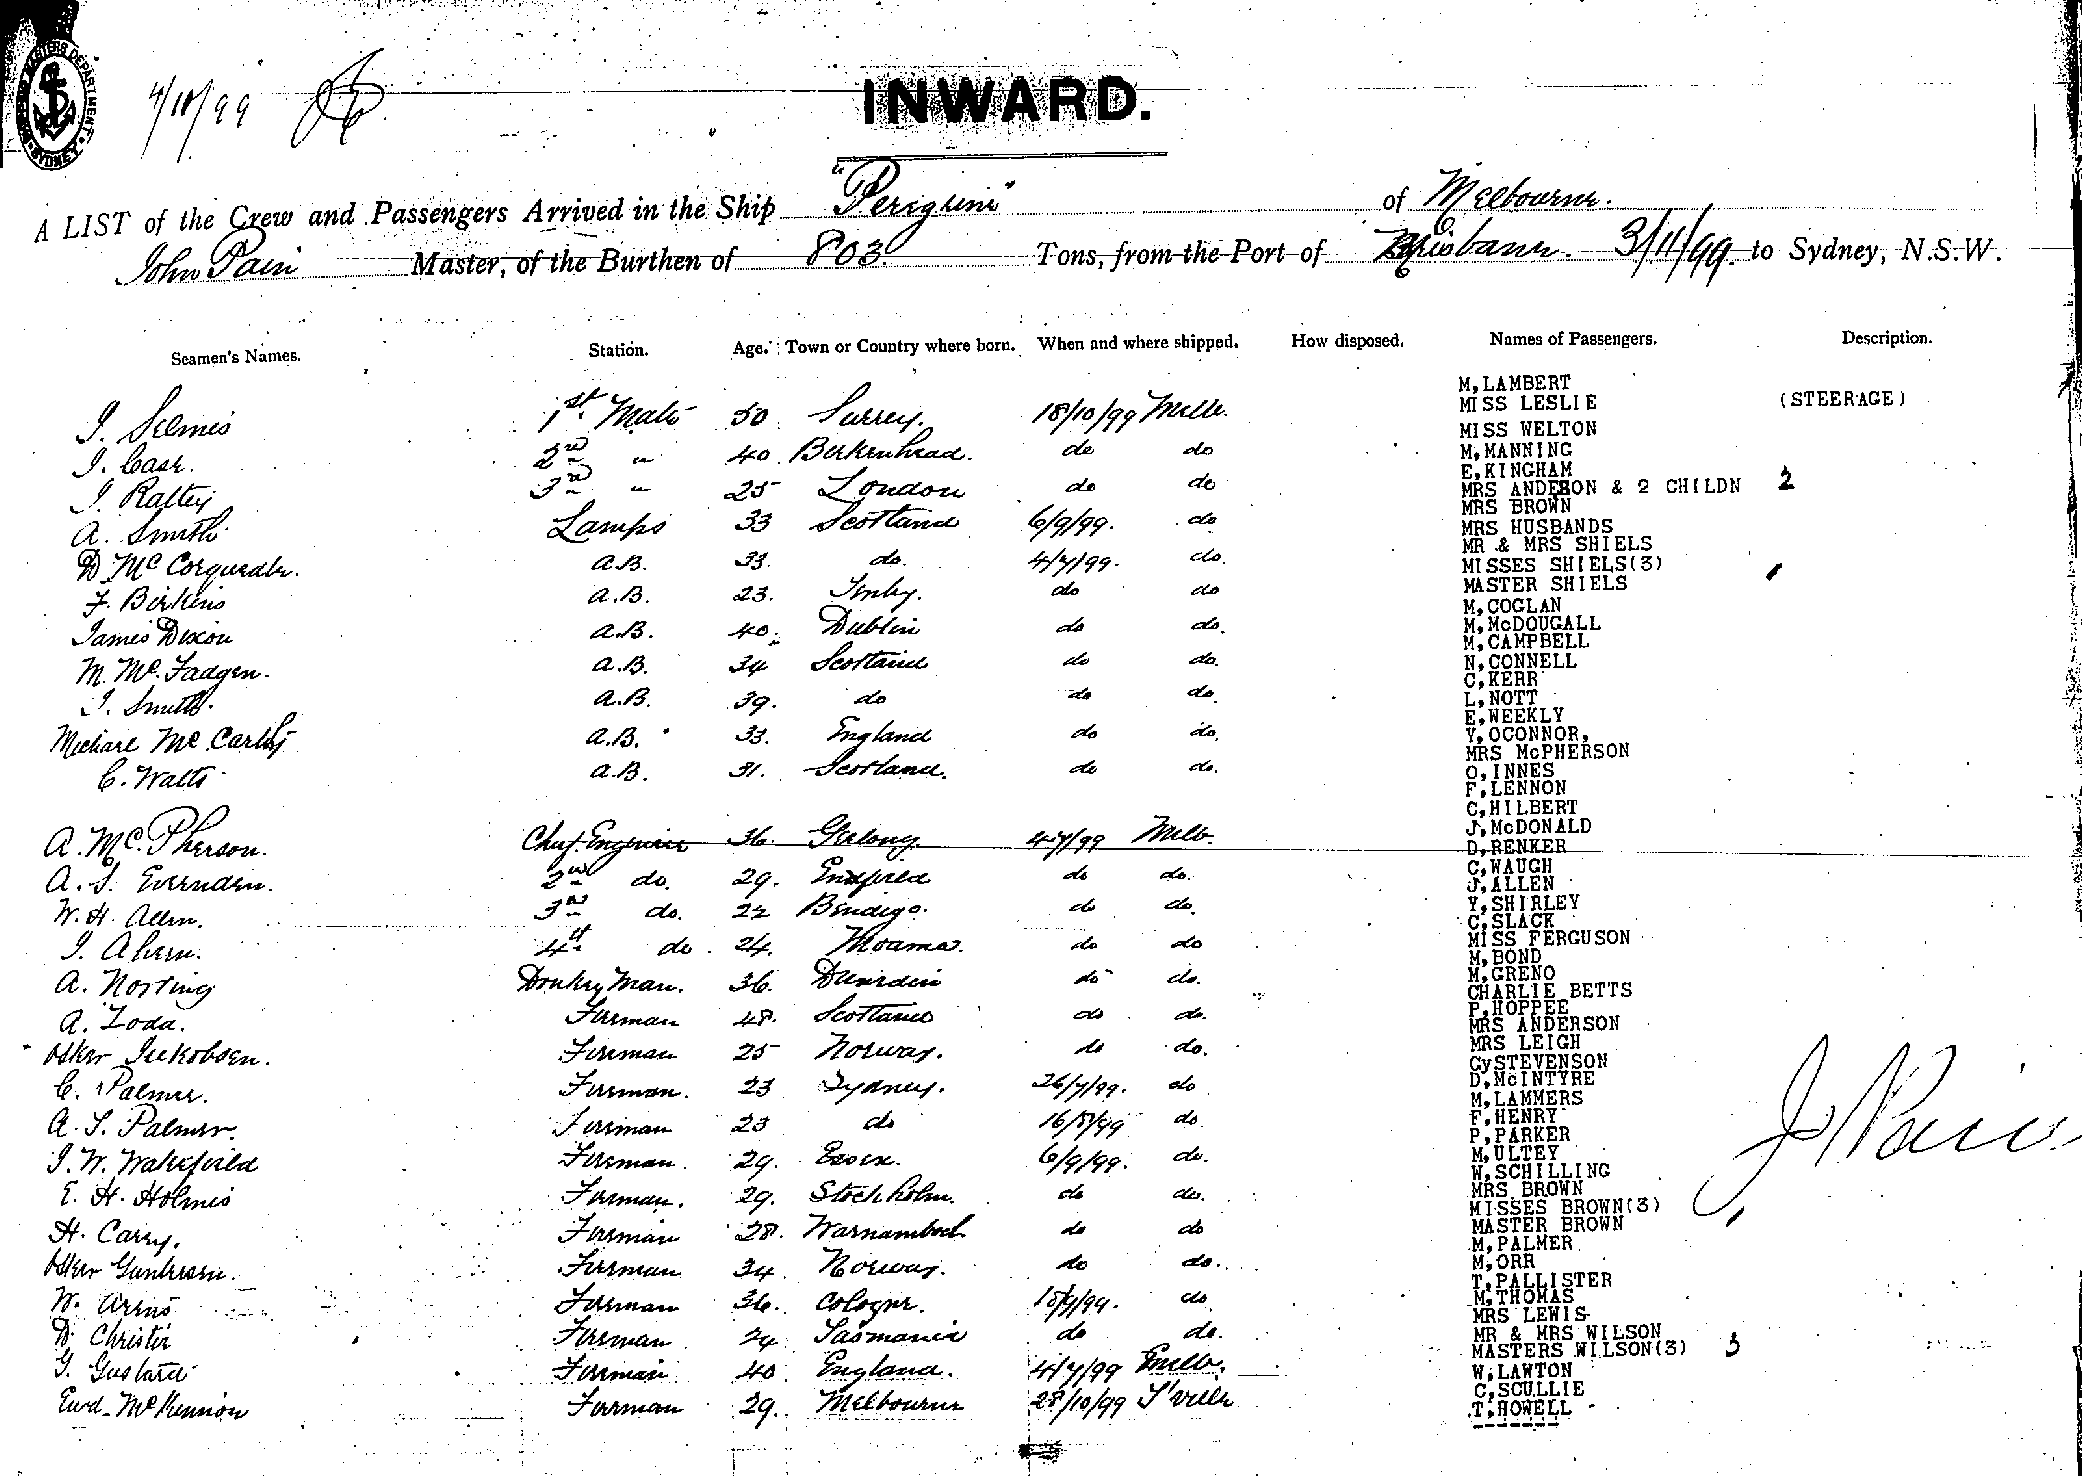 MASTERS DEPARTMENT SYDNEY
4/10/99
INWARD.
A LIST of the Crew and Passengers Arrived in the Ship "Peregrine" of Melbourne.
John Pain Master, of the Burthen of 803 Tons, from the Port of Brisbane. 3/11/99 to Sydney, N.S.W.
Seamen's Names. Station. Age. Town or Country where born. When and where shipped. How disposed. Names of Passengers. Description.
J. Selmes 1st Mate 50 Surrey. 18/10/99 Melb.
J. Case. 2nd " 40 Birkenhead. do do
J. Rattey 3rd " 25 London do do
A. Smith Lamps 33 Scotland 6/9/99. do
D. McCorquedale. A.B. 33. do. 4/7/99. do.
F. Birkens A.B. 23. do do
James Dixon A.B. 40. Dublin do do.
M. McFadgen. A.B. 34 Scotland do do.
J. Smith. A.B. 39. do do do.
Michael McCarthy A.B. 33. England do do.
C. Watts A.B. 31. Scotland. do do.
A. McPherson. Chief Engineer 36. Geelong 4/7/99 Melb.
A. J. Evernden. 2nd do. 29. do do.
W. H. Allen. 3rd do. 22 Bendigo. do do.
J. Ahern. 4th do. 24. Moama. do do
A. Norting Donkey Man. 36. Dunedin do do.
A. Zoda. Fireman 48. Scotland do do.
Osker Jeekobsen. Fireman 25 Norway. do do.
C. Palmer. Fireman. 23 Sydney. 26/7/99. do
A. S. Palmer. Fireman 23 do 16/8/99 do.
J. W. Wakefield Fireman. 29. Essex. 6/9/99. do.
E. H. Holmes Fireman. 29. Stockholm. do do.
H. Carey. Fireman 28. Warnambool do do
Osker Gundersen. Fireman 34 Norway. do do.
W. Arens Fireman 36. Cologne. 15/9/99. do
D. Christie Fireman 24 Tasmania do do.
G. Gustard Fireman 40. England. 4/7/99 Melb.
Ewd. McKennion Fireman 29. Melbourne 28/10/99 T'ville
M,LAMBERT
MISS LESLIE (STEERAGE)
MISS WELTON
M,MANNING
E,KINGHAM
MRS ANDERSON & 2 CHILDN 2
MRS BROWN
MRS HUSBANDS
MR & MRS SHIELS
MISSES SHIELS(3)
MASTER SHIELS
M,COGLAN
M,McDOUGALL
M,CAMPBELL
N,CONNELL
C,KERR
L,NOTT
E,WEEKLY
Y,OCONNOR,
MRS McPHERSON
O,INNES
F,LENNON
C,HILBERT
J,McDONALD
D,RENKER
C,WAUGH
J,ALLEN
Y,SHIRLEY
C,SLACK
MISS FERGUSON
M,BOND
M,GRENO
CHARLIE BETTS
P,HOPPEE
MRS ANDERSON
MRS LEIGH
CySTEVENSON
D,McINTYRE
M,LAMMERS
F,HENRY
P,PARKER
M,ULTEY
W,SCHILLING
MRS BROWN
MISSES BROWN(3)
MASTER BROWN
M,PALMER
M,ORR
T,PALLISTER
M,THOMAS
MRS LEWIS
MR & MRS WILSON
MASTERS WILSON(3) 3
W,LAWTON
C,SCULLIE
T,HOWELL
J. Pain